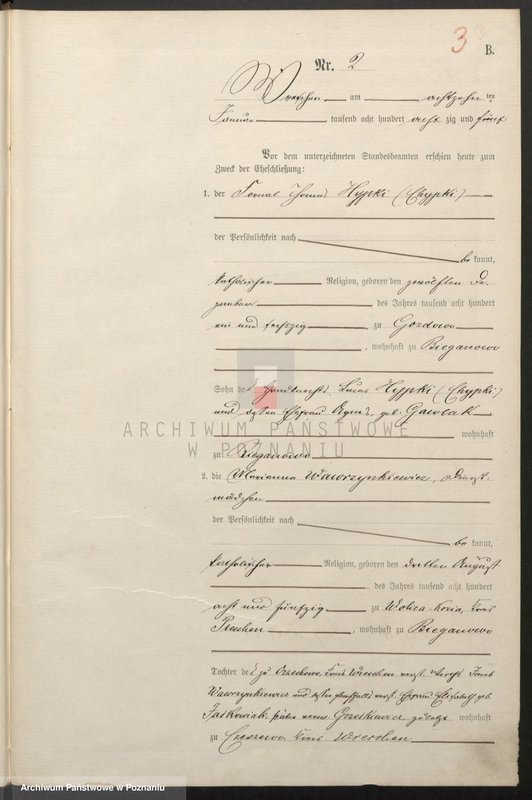 3
B.
Nr. 2
Wreschen am achtzehnten
Januar tausend acht hundert achtzig und fünf
Vor dem unterzeichneten Standesbeamten erschien heute zum
Zweck der Eheschließung:
1. der Fornal Thomas Hyppki (Chypki)
der Persönlichkeit nach
bekannt,
katholischer Religion, geboren den zwölften De-
zember des Jahres tausend acht hundert
ein und sechszig zu Gozdowo
, wohnhaft zu Bieganowo
Sohn des Lucas Hyppki (Chypki)
und dessen Ehefrau Agnes, geb. Gawlak
wohnhaft
zu Bieganowo
ARCHIWUM PAŃSTWOWE
W POZNANIU
2. die Marianna Wawrzynkiewicz, Dienst-
mädchen
der Persönlichkeit nach
bekannt,
katholischer Religion, geboren den dritten August
des Jahres tausend acht hundert
acht und fünfzig zu Wolica-Kozia, Kreis
Pleschen, wohnhaft zu Bieganowo
Tochter des zu Orzechowo, Kreis Wreschen verst. Jacob
Wawrzynkiewicz und dessen ebenfalls verst. Ehefrau Elisabeth geb.
wohnhaft
zu Czeszewo Kreis Wreschen
Archiwum Państwowe w Poznaniu
Archiwum Państwowe w Poznaniu